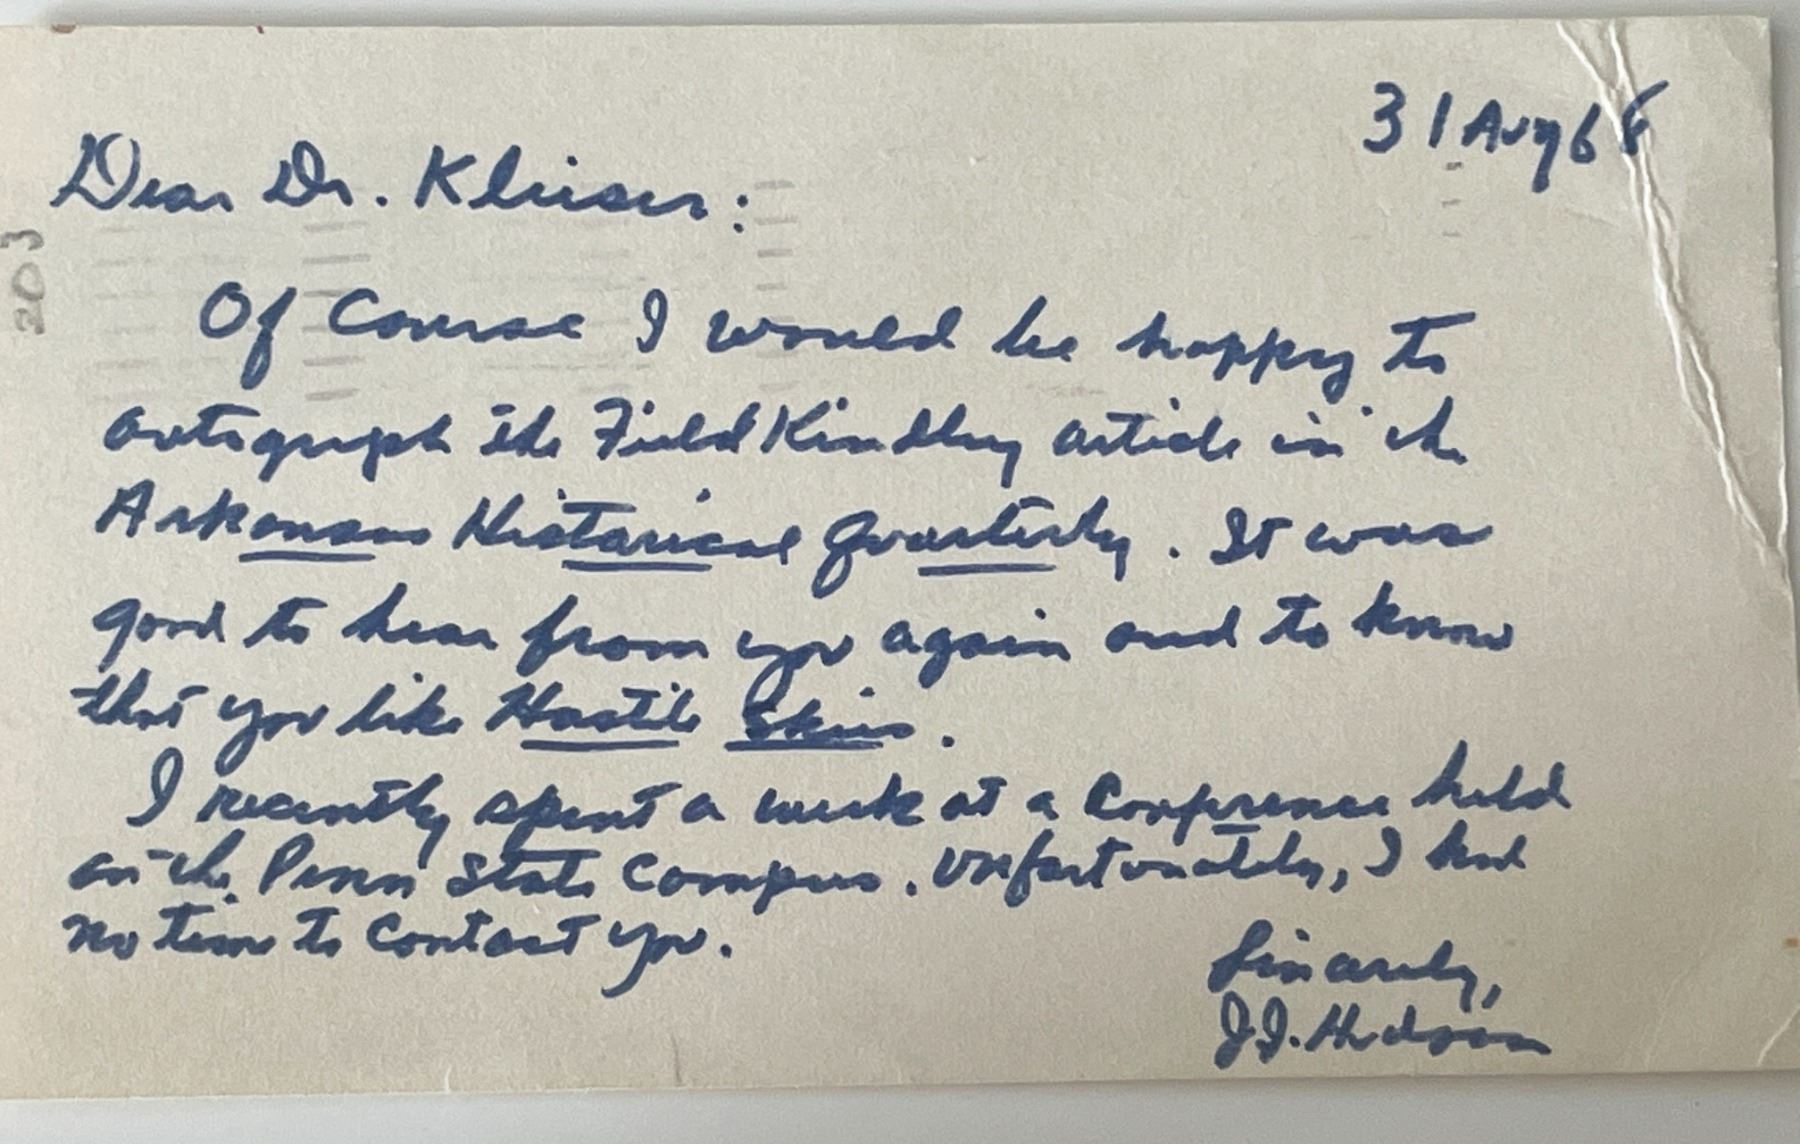 31 Aug 68
Dear Dr. Klieser:
Of Course I would be happy to
autograph the Field Kindley article in the
Arkansas Historical Quarterly. It was
good to hear from you again and to know
that you like Hostile Skies.
I recently spent a week at a Conference held
on the Penn State Campus. Unfortunately, I had
no time to Contact you.
Sincerely,
J.J. Hudson
203